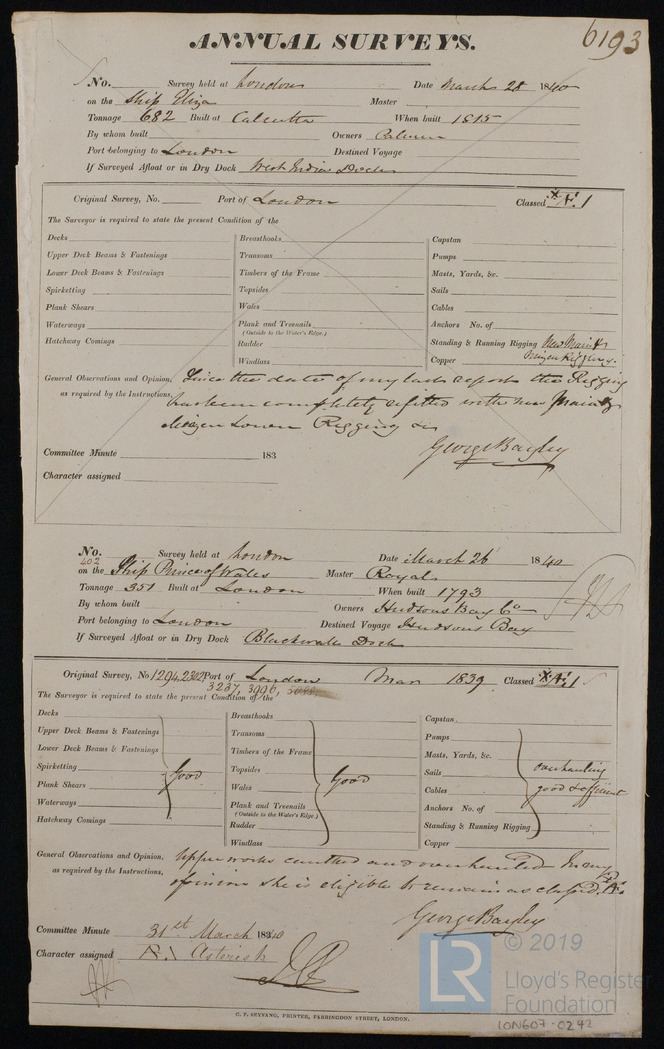 6193
ANNUAL SURVEYS.
No. Survey held at London Date March 28 1840
on the Ship Eliza Master
Tonnage 682 Built at Calcutta When built 1815
By whom built Owners
Port belonging to London Destined Voyage
If Surveyed Afloat or in Dry Dock West India Docks
Original Survey, No. Port of London Classed
The Surveyor is required to state the present Condition of the
Decks
Upper Deck Beams & Fastenings
Lower Deck Beams & Fastenings
Spirketting
Plank Shears
Waterways
Hatchway Comings
Breasthooks
Transoms
Timbers of the Frame
Topsides
Wales
Plank and Treenails
(Outside to the Water's Edge.)
Rudder
Windlass
Capstan
Pumps
Masts, Yards, &c.
Sails
Cables
Anchors No. of
Standing & Running Rigging New Main &
Copper Mizen Rigging.
General Observations and Opinion, Since the date of my last report the Rigging
as required by the Instructions, has been completely refitted with new Main &
Mizen Lower Rigging &c
George Bayley
Committee Minute 183
Character assigned
No. 402 Survey held at London Date March 26 1840
on the Ship Prince of Wales Master Royal
Tonnage 351 Built at London When built 1793
By whom built Owners Hudsons Bay Co
Port belonging to London Destined Voyage Hudsons Bay
If Surveyed Afloat or in Dry Dock Blackwall Dock
Original Survey, No 1294, 2302 Port of London Mar 1839 Classed *Æ1
3237, 3996,
The Surveyor is required to state the present Condition of the
Decks
Upper Deck Beams & Fastenings
Lower Deck Beams & Fastenings
Spirketting Good
Plank Shears
Waterways
Hatchway Comings
Breasthooks
Transoms
Timbers of the Frame
Topsides Good
Wales
Plank and Treenails
(Outside to the Water's Edge.)
Rudder
Windlass
Capstan
Pumps
Masts, Yards, &c. overhauling
Sails
Cables good & efficient
Anchors No. of
Standing & Running Rigging
Copper
General Observations and Opinion, Upper works caulked and overhauled In my
as required by the Instructions, opinion she is eligible to remain as classed *Æ1
George Bayley
Committee Minute 31st March 1840
Character assigned Æ1 Asterisk
C. F. SEYFANG, PRINTER, FARRINGDON STREET, LONDON.
LR
© 2019
Lloyd's Register
Foundation
LON607-0242